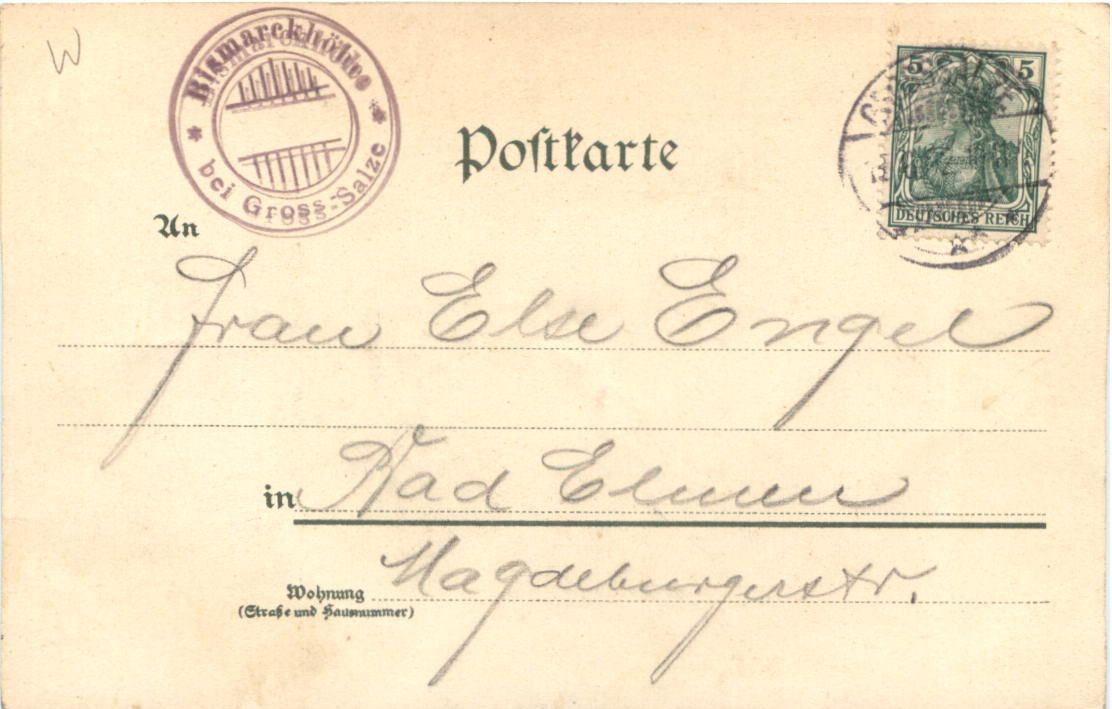 W
Bismarckhöhe
bei Gross-Salze
Postkarte
5 5
DEUTSCHES REICH
An
Frau Else Engel
in Bad Elmen
Wohnung Magdeburgerstr.
(Straße und Hausnummer)